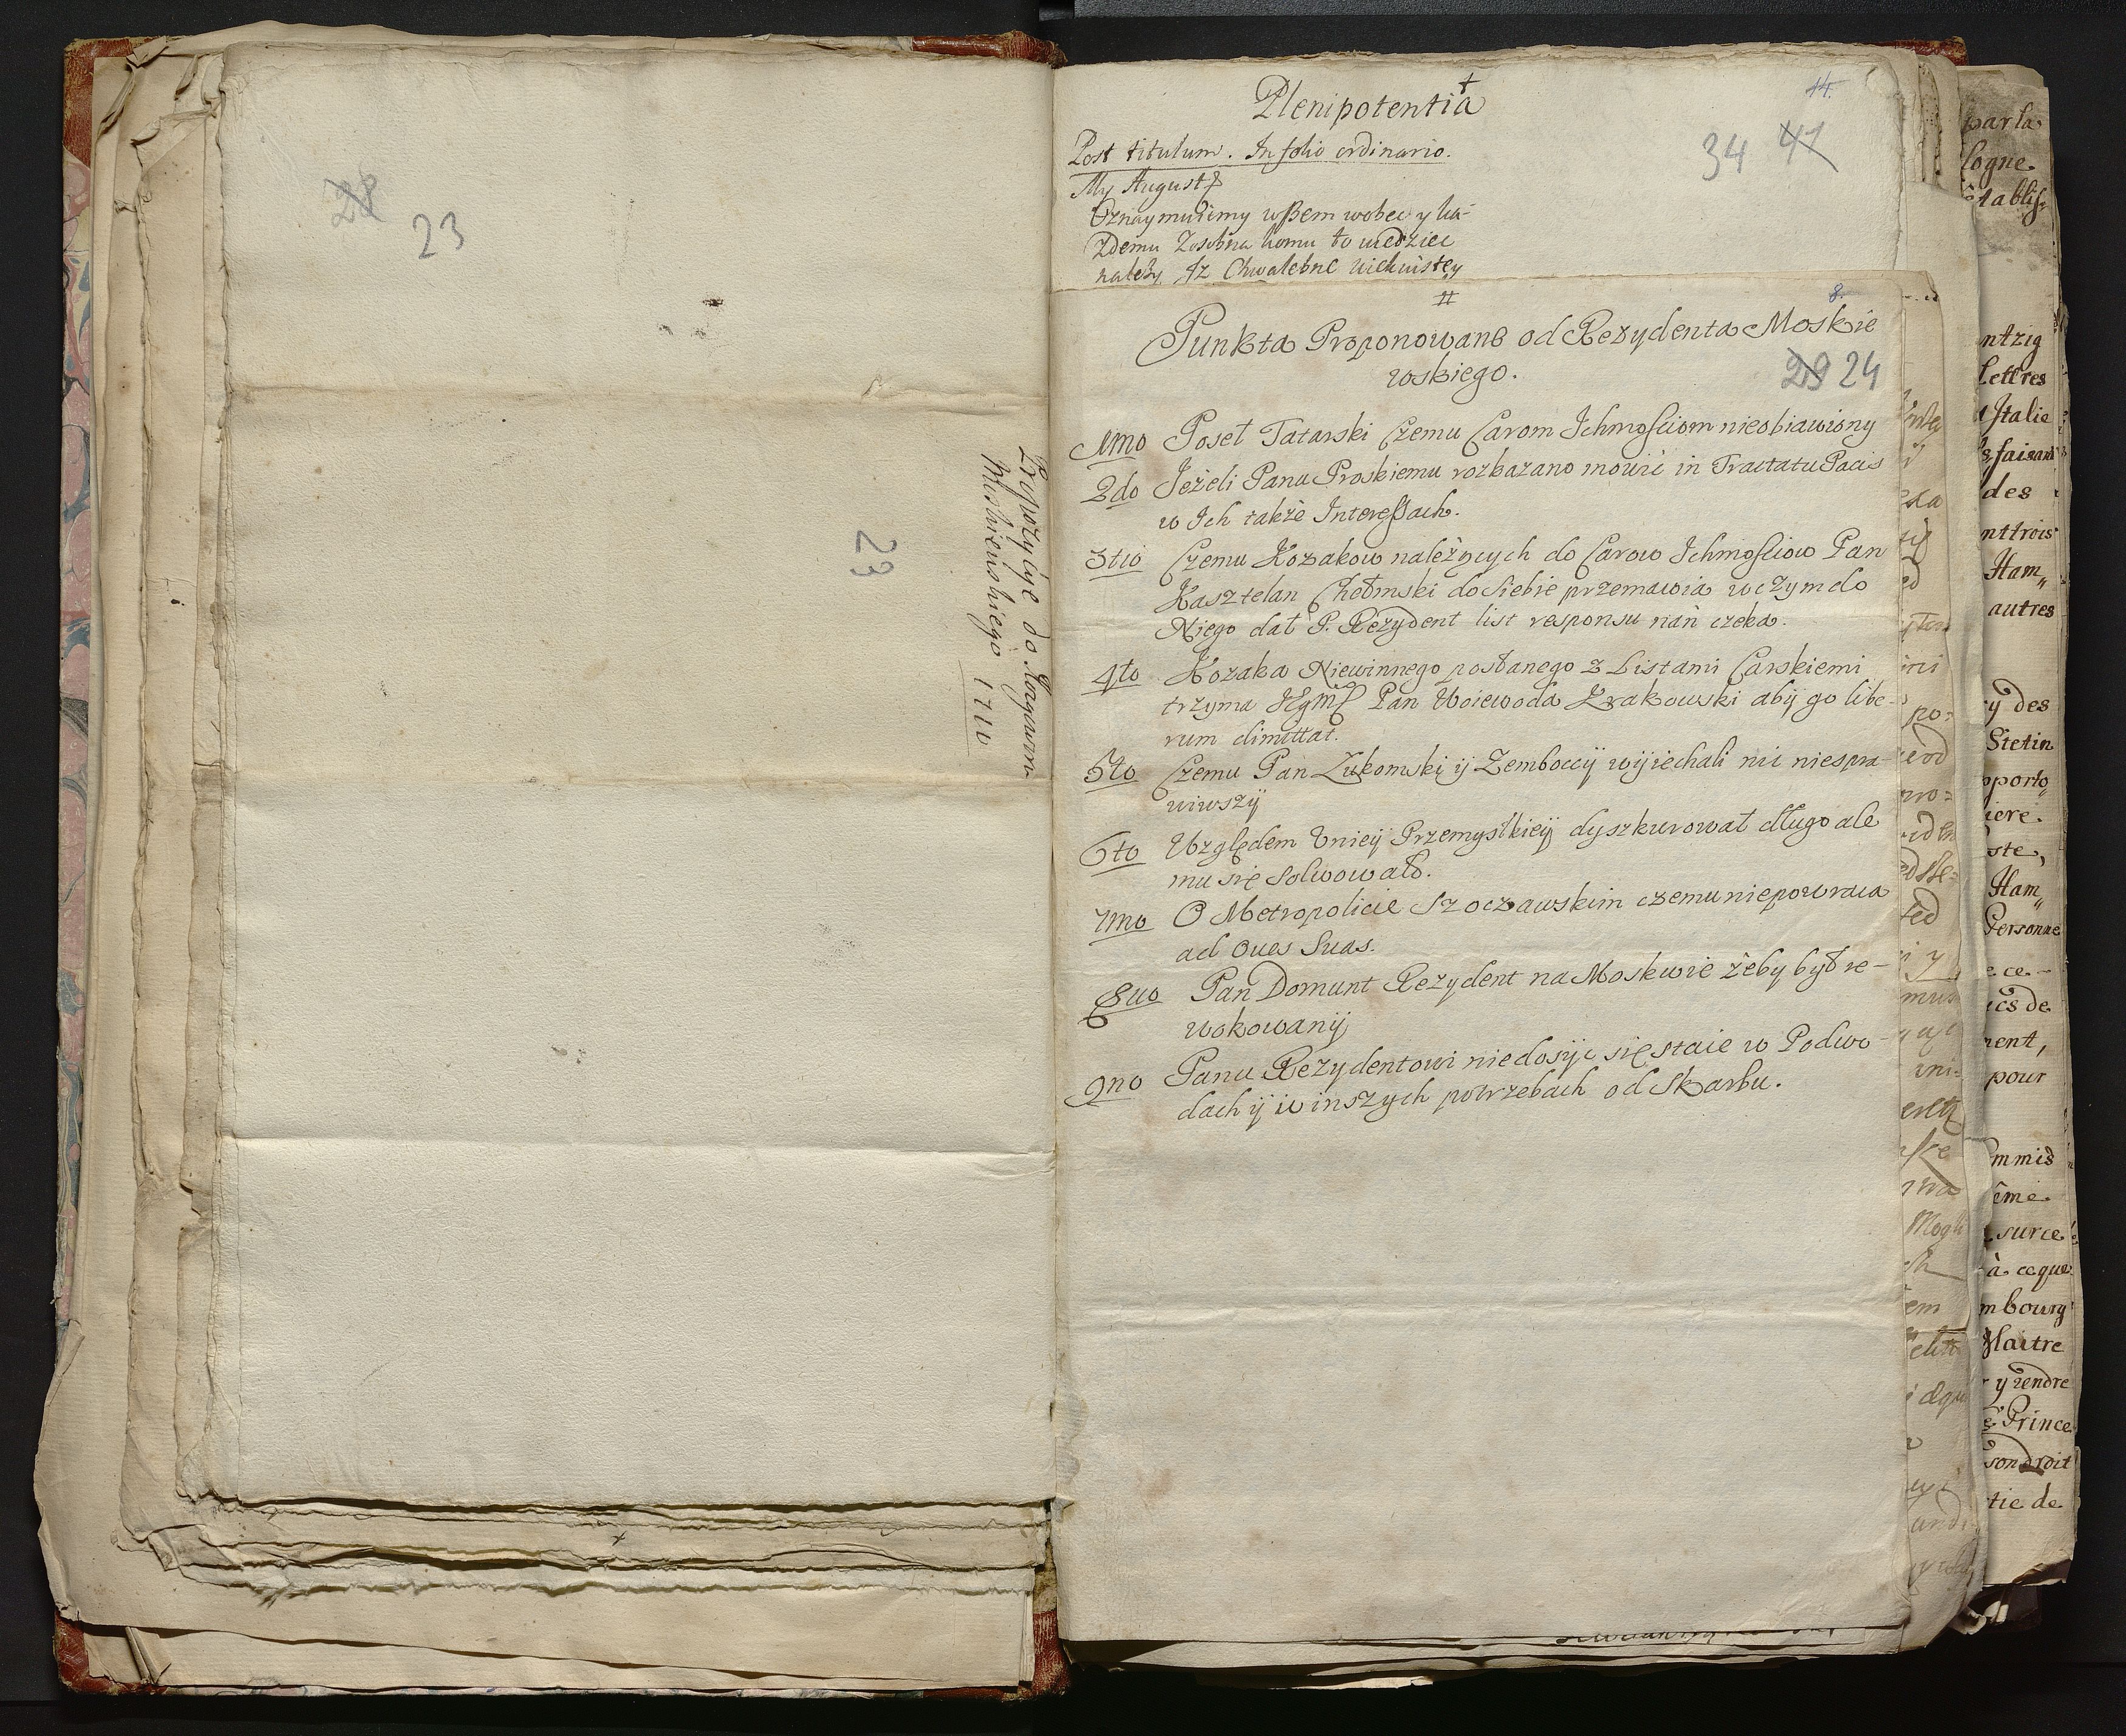 28
23
23
Propozycye do Rezydenta
Moskiewskiego 1710
Plenipotentia
14.
34 41
Post titulum. In folio ordinario.
My August
Oznaymuiemy wßem wobec y ka-
żdemu Zosobna komu to wiedziec
należy, Iz Chwalebne wiekuistey
#
8.
Punkta Proponowane od Rezydenta Moskie
wskiego.
29 24
1mo Poseł Tatarski Czemu Carom Ichmosciom nieobiawiony
2do Jeżeli Panu Proskiemu rozkazano mowić in Tractatu Pacis
w Ich także Interessach.
3tio Czemu Kozakow należących do Carow Ichmosciow Pan
Kasztelan Chełmski do Siebie przemawia w czym do
Niego dał P. Rezydent list responsu nań czeka.
4to Kozaka Niewinnego posłanego z Listami Carskiemi
trzyma Jegmść Pan Woiewoda Krakowski abÿ go libe-
rum dimittat.
5to Czemu Pan Łukomski ÿ Zemboccÿ wÿiechali nic niespra-
wiwszÿ
6to Względem Vnieÿ Przemyskieÿ dyszkurował długo ale
mu się Solwowało.
7mo O Metropolicie Szoczawskim czemu niepowraca
ad Oues Suas.
8uo Pan Domunt Rezydent na Moskwie żeby był re-
wokowanÿ
9no Panu Rezydentowi niedosÿc się staie w Podwo-
dach ÿ w inszych potrzebach od Skarbu.
par la
logne
établis-
ntzig
Lettres
Italie
faisant
des
nttrois
Ham„
autres
y des
Stetin
pporto„
iere.
ste,
Ham„
Personne
e ce-
ics de
ment,
pour
mmis
ême
surce
à ceque
mbourg
Maitre
y rendre
e Prince
son droit
tie de